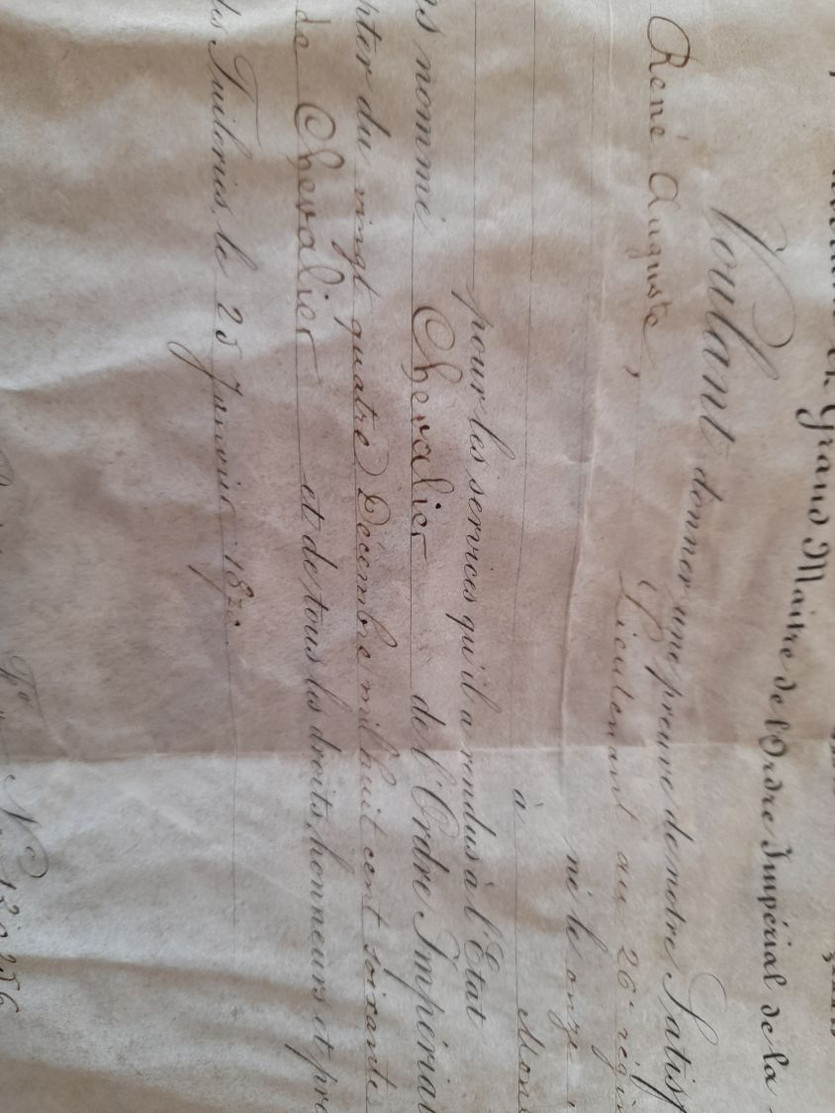 Grand Maître de l'Ordre Impérial de la
Voulant donner une preuve de notre Satisf
René Auguste, Lieutenant au 26e régim
né le onze
à Mon
pour les services qu'il a rendus à l'Etat
s nommé Chevalier de l'Ordre Impérial
pter du vingt quatre Décembre mil huit cent soixante
de Chevalier et de tous les droits, honneurs et pré
des Tuileries, le 25 Janvier 1870.
No 130256